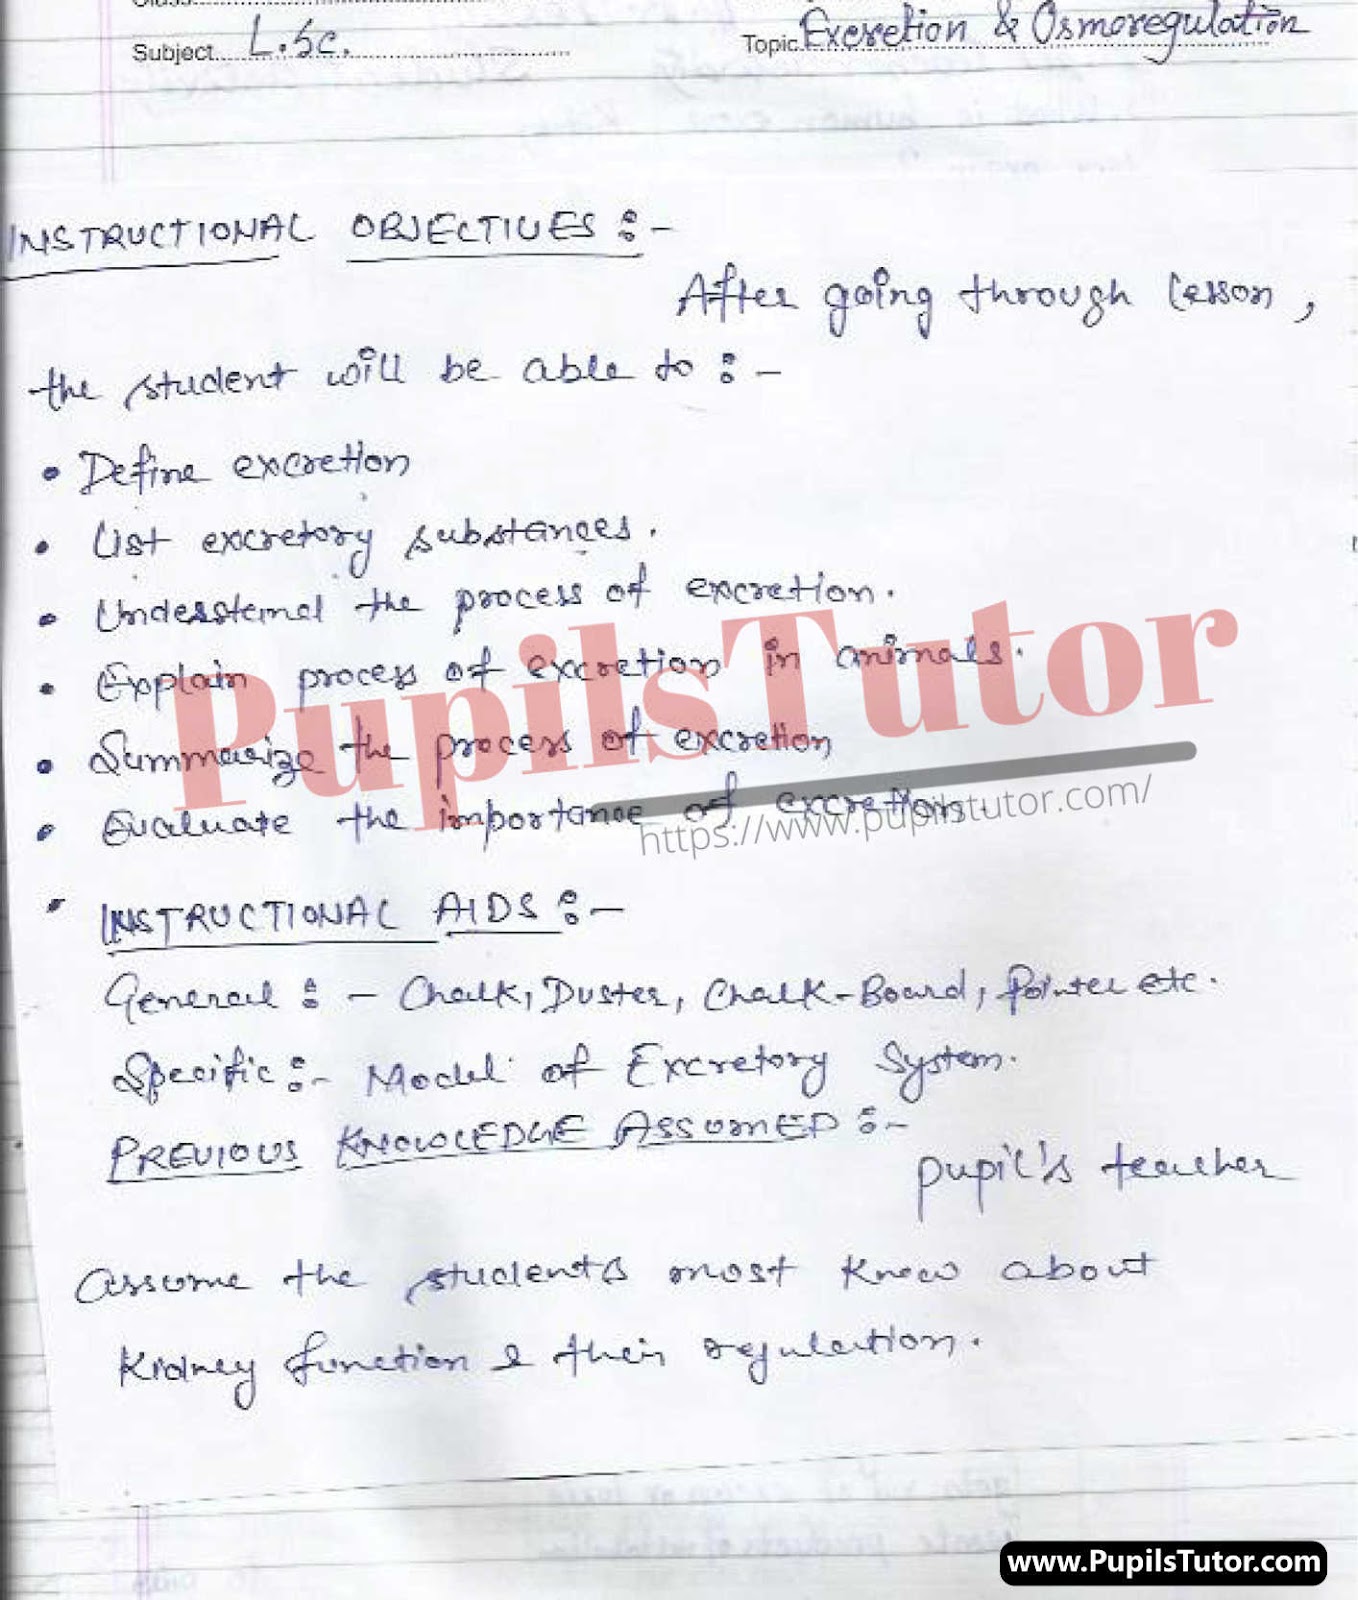 Subject L.Sc.
Topic Excretion & Osmoregulation
INSTRUCTIONAL OBJECTIVES :-
After going through lesson,
the student will be able to :-
• Define excretion
• List excretory substances.
• Understand the process of excretion.
• Explain process of excretion in animals.
• Summarize the process of excretion
• Evaluate the importance of excretion.
PupilsTutor
https://www.pupilstutor.com/
• INSTRUCTIONAL AIDS :-
General :- Chalk, Duster, Chalk-Board, Pointer etc.
Specific :- Model of Excretory System.
PREVIOUS KNOWLEDGE ASSUMED :-
pupil's teacher
assume the students most know about
Kidney function & their regulation.
www.PupilsTutor.com